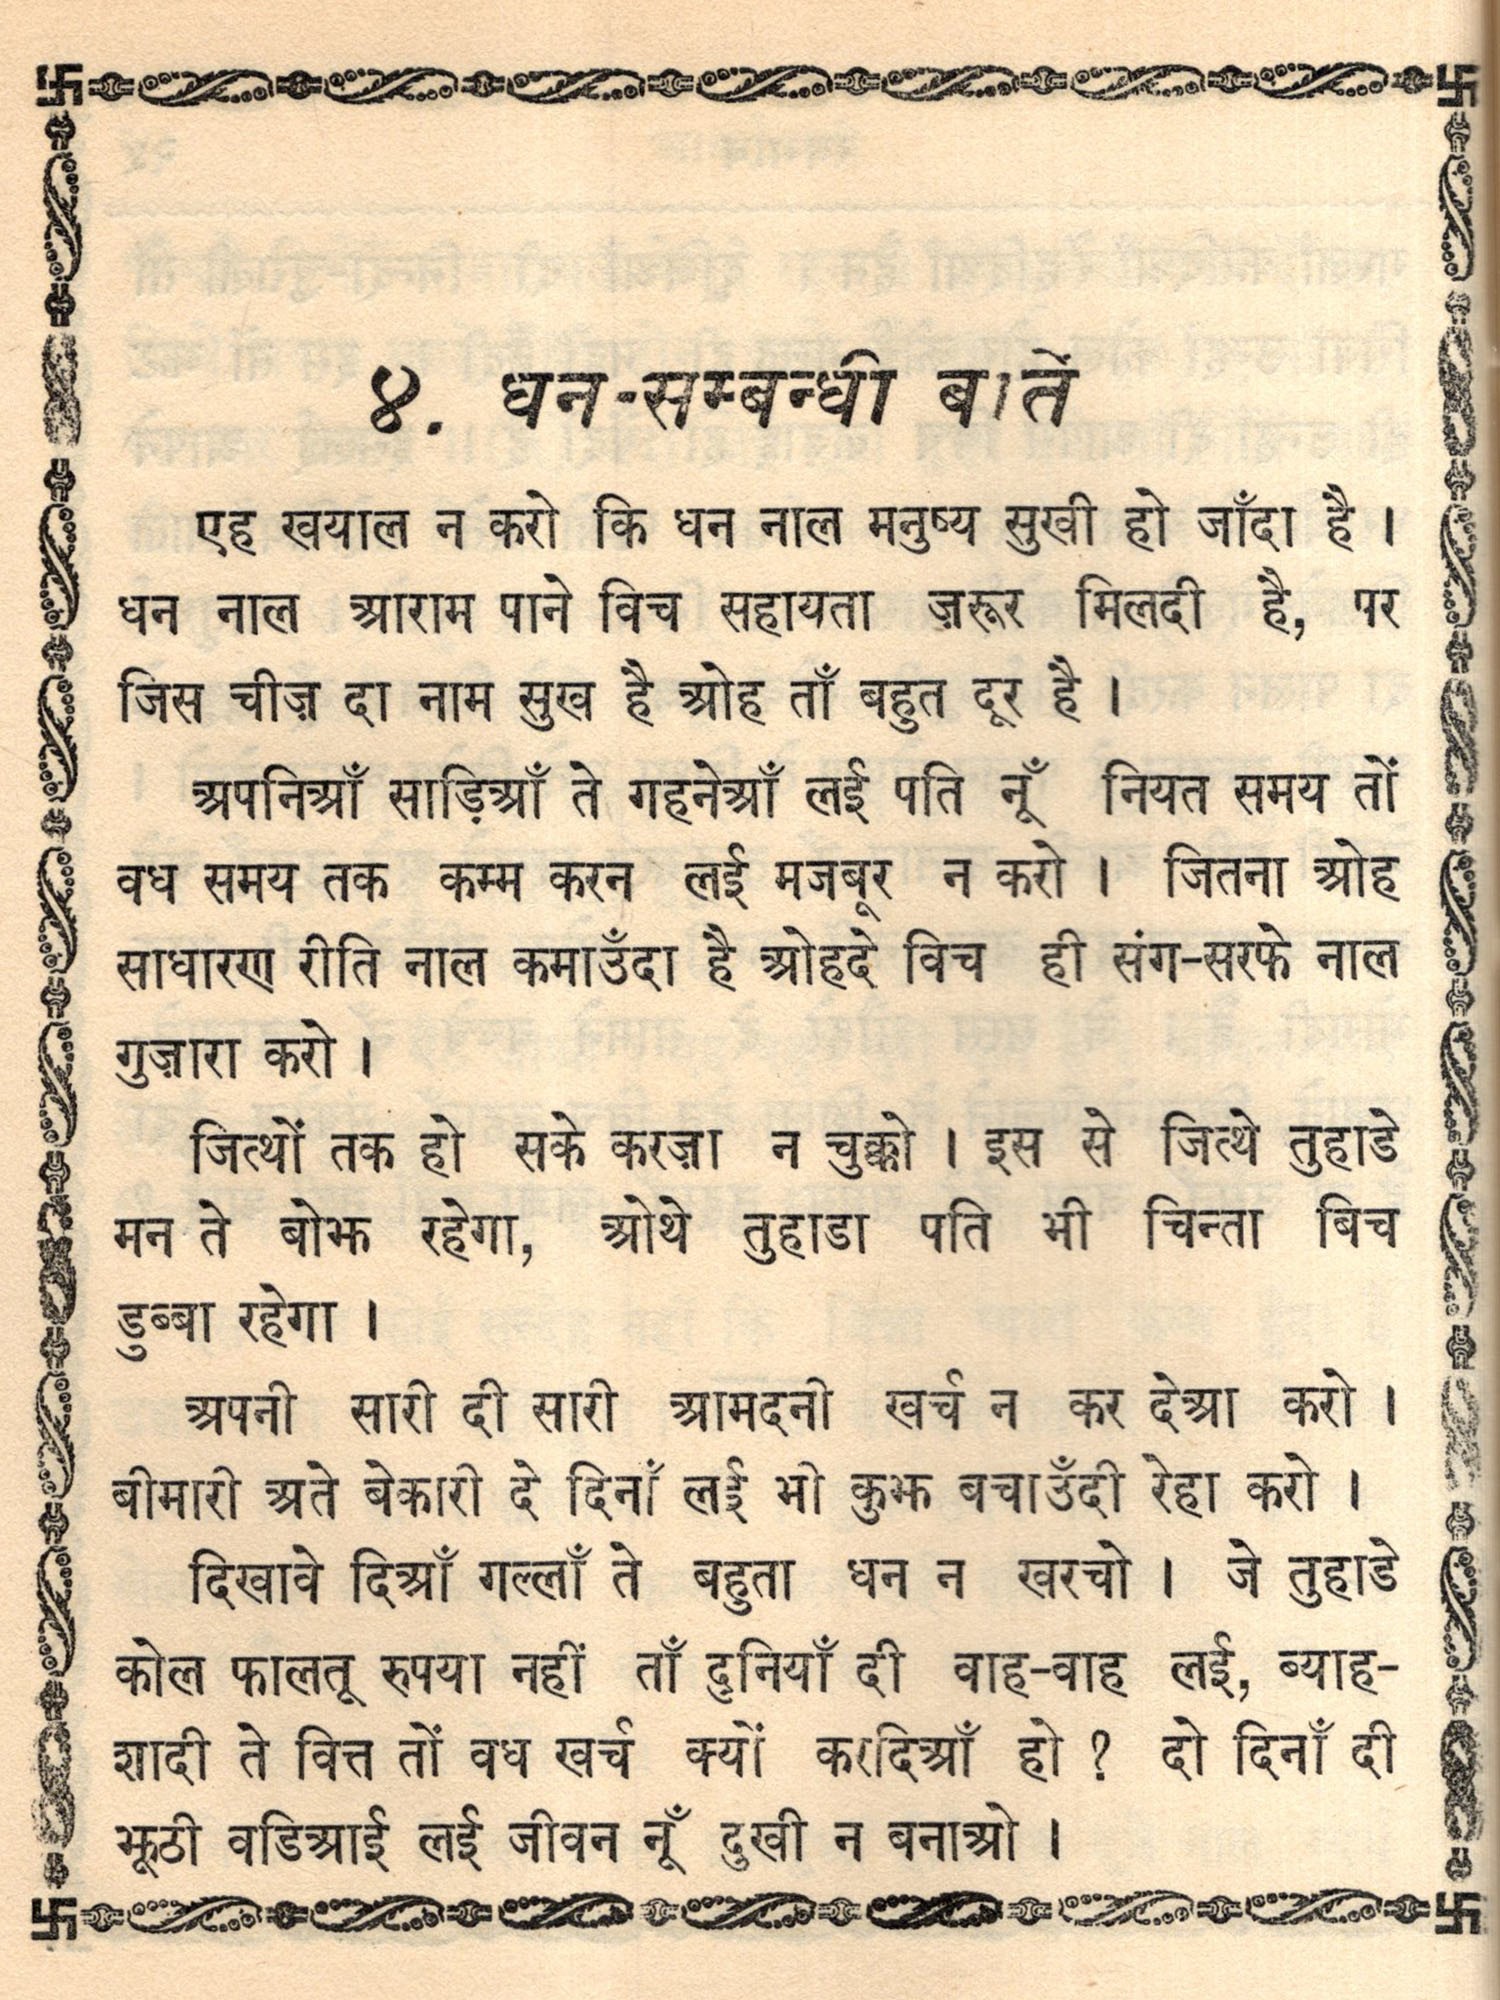 ४. धन-सम्बन्धी बातें
एह खयाल न करो कि धन नाल मनुष्य सुखी हो जाँदा है ।
धन नाल आराम पाने विच सहायता ज़रूर मिलदी है, पर
जिस चीज़ दा नाम सुख है ओह ताँ बहुत दूर है ।
अपनिआँ साड़िआँ ते गहनेआँ लई पति नूँ नियत समय तों
वध समय तक कम्म करन लई मजबूर न करो । जितना ओह
साधारण रीति नाल कमाउँदा है ओहदे विच ही संग-सरफे नाल
गुज़ारा करो ।
जित्थों तक हो सके करज़ा न चुक्को । इस से जित्थे तुहाडे
मन ते बोझ रहेगा, ओथे तुहाडा पति भी चिन्ता बिच
डुब्बा रहेगा ।
अपनी सारी दी सारी आमदनी खर्च न कर देआ करो ।
बीमारी अते बेकारी दे दिनाँ लई भी कुझ बचाउँदी रेहा करो ।
दिखावे दिआँ गल्लाँ ते बहुता धन न खरचो । जे तुहाडे
कोल फालतू रुपया नहीं ताँ दुनियाँ दी वाह-वाह लई, ब्याह-
शादी ते वित्त तों वध खर्च क्यों करदिआँ हो ? दो दिनाँ दी
झूठी वडिआई लई जीवन नूँ दुखी न बनाओ ।